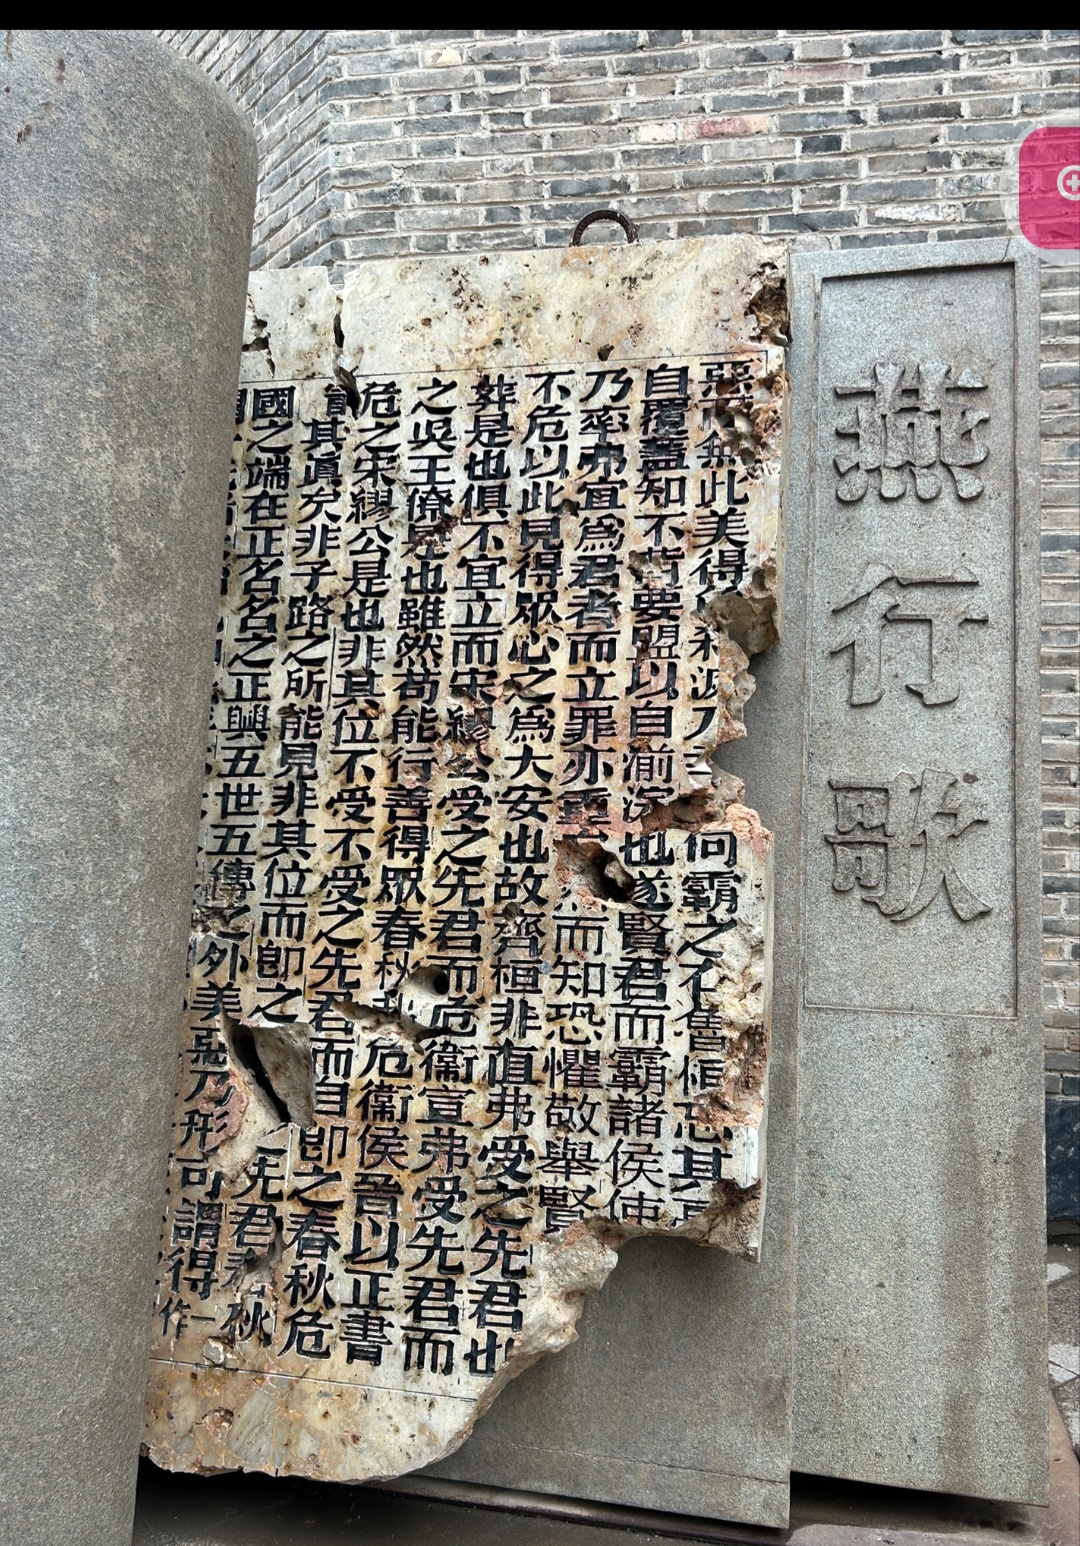 燕行歌
此美得何霸之忘其
自覆蓋知不背要盟以自湔浣也遂賢君而霸諸侯使
乃率弗宜爲君者而立罪亦重而知恐懼敬舉賢
不危以此見得眾心之爲大安也故齊桓非直弗受之先君也
葬是也俱不宜立而宋繆公受之先君而危衞宣弗受先君而
之吳王僚是也雖然苟能行善得眾春秋弗危衞侯晉以正書
危之宋繆公是也非其位不受不受之先君而自即之春秋危
其眞矣非子路之所能見非其位而卽之先君春秋
國之端在正名名之正興五世五傳之外美惡乃形可謂得